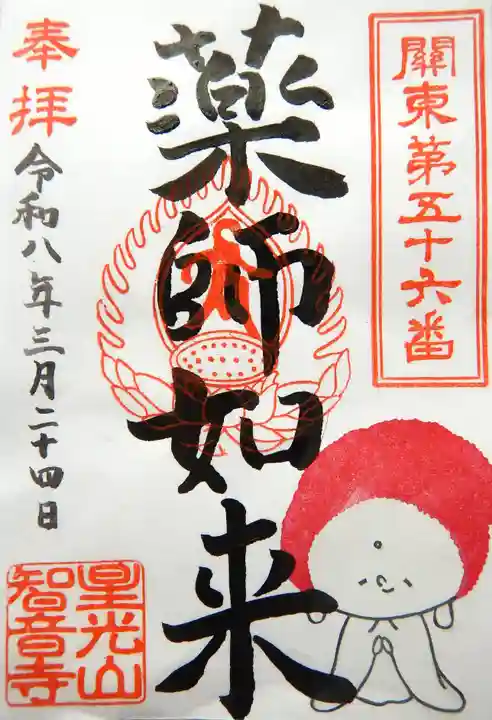 關東第五十六番
薬師如来
奉拝
令和八年三月二十四日
星光山
智音寺